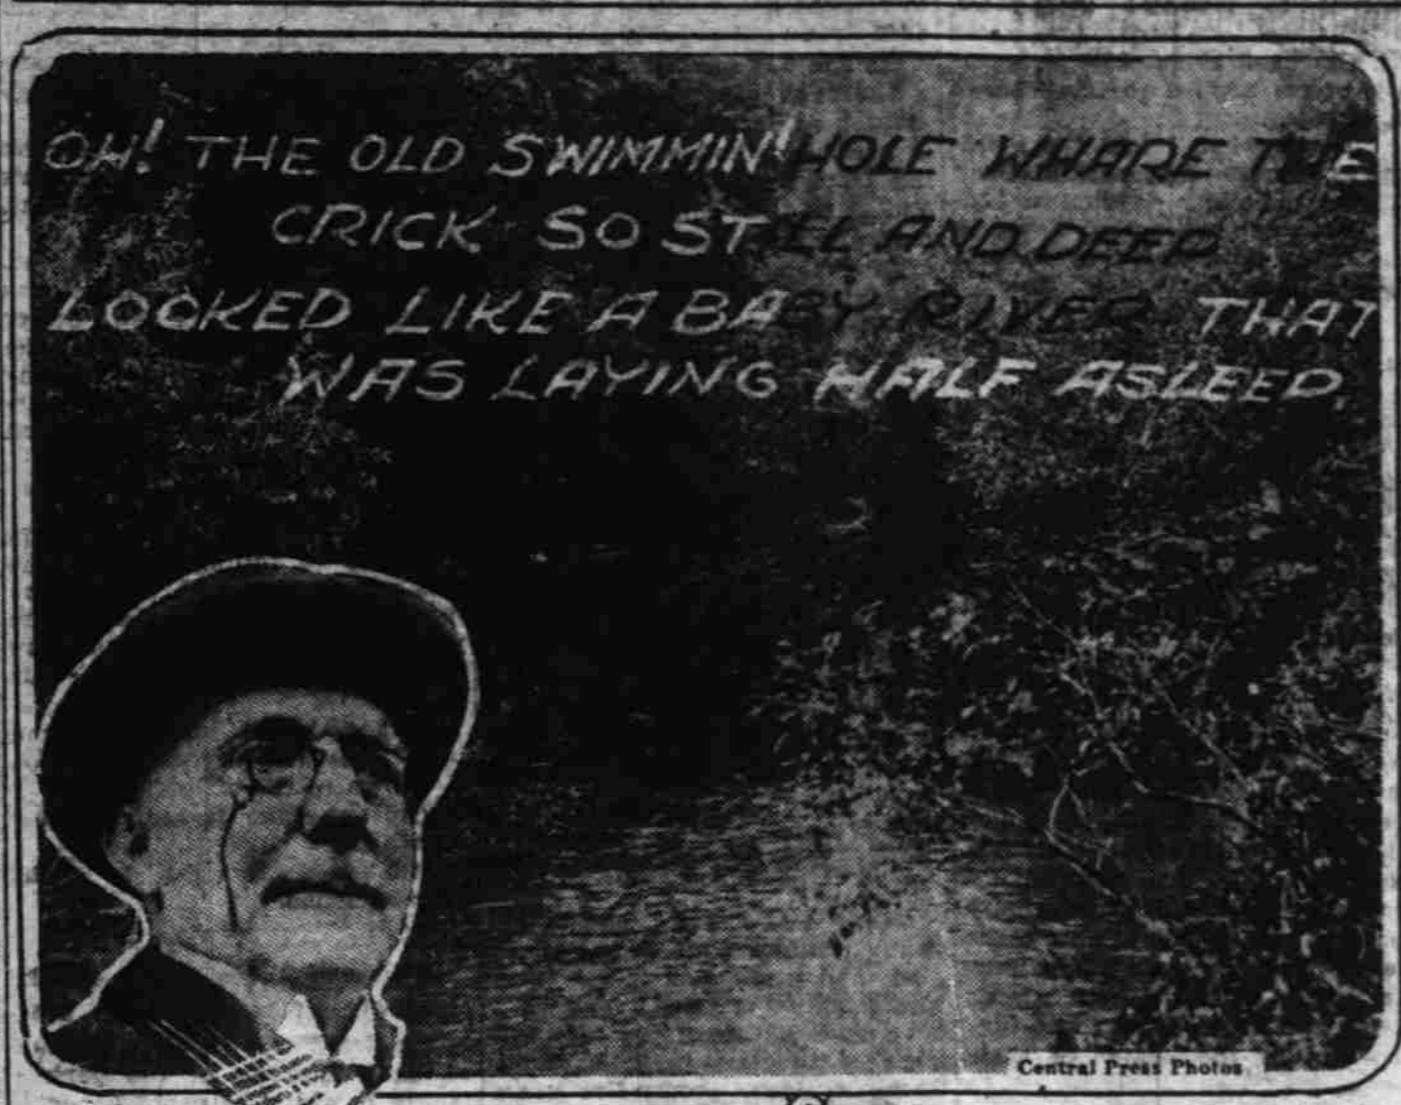 OH! THE OLD SWIMMIN' HOLE WHARE THE
CRICK SO STILL AND DEEP
LOOKED LIKE A BABY RIVER THAT
WAS LAYING HALF ASLEEP.
Central Press Photos